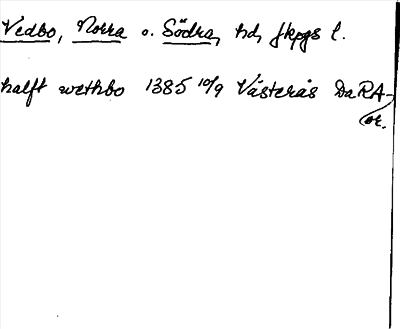 Vedbo, Norra o. Södra, hd, Jkpgs l.
halft wæthbo 1385 10/9 Västerås DaRA
or.